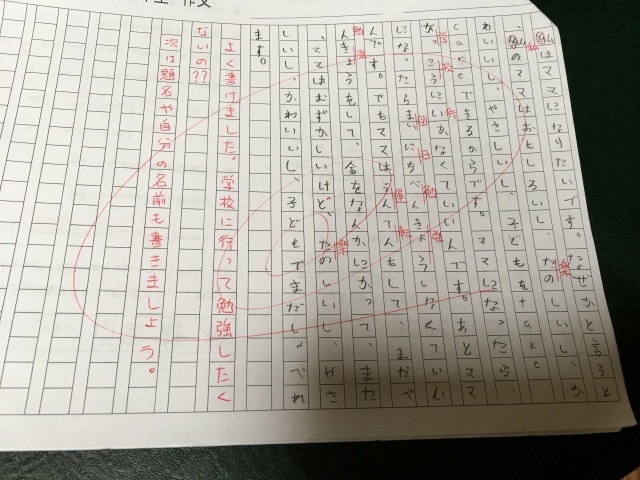 作文
私はママになりたいです。なぜかと言うと
楽
、私のママはおもしろいし、たのしいし、か
私
わいいし、やさしいし、子どもをtake
careできるからです。ママになったら、
学校 行
がっこうにいかなくていいんです。あとママ
毎日勉強
になったらまいにちべんきょうしなくていい
運転
んです。でもママはうんてんもして、まだべ
勉強
んきょうをして、金をなんかにかって、また
楽
はむずかしいけど、たのしいし、やさ
しいし、かわいいし、子どもでまだしゃべれ
ます。
よく書けました。学校に行って勉強したく
ないの??
次は題名や自分の名前も書きましょう。